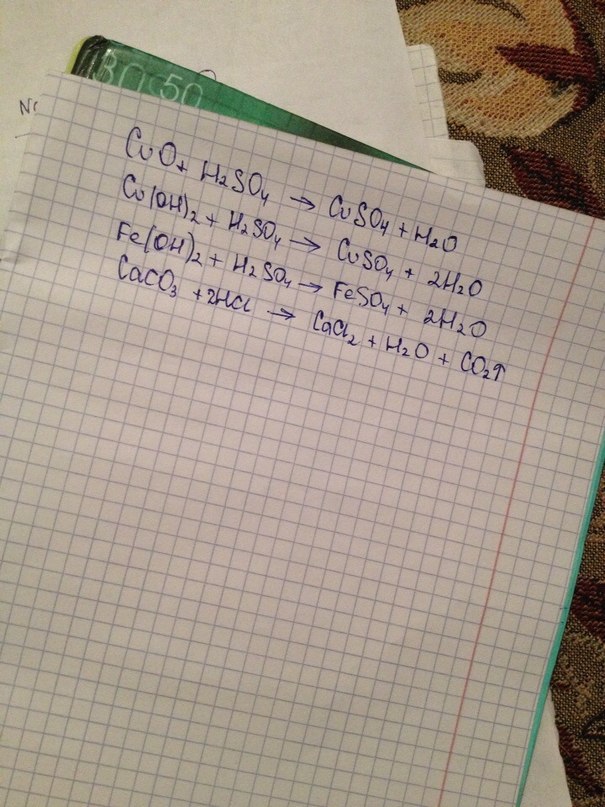 30-50
CuO + H₂SO₄ → CuSO₄ + H₂O
Cu(OH)₂ + H₂SO₄ → CuSO₄ + 2H₂O
Fe(OH)₂ + H₂SO₄ → FeSO₄ + 2H₂O
CaCO₃ + 2HCl → CaCl₂ + H₂O + CO₂↑